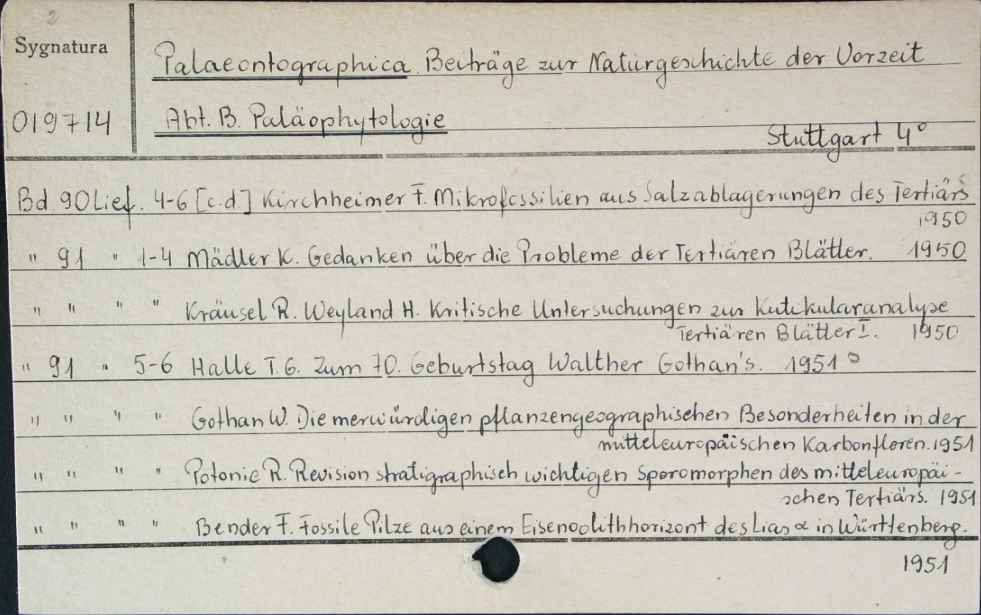 2
Sygnatura
Palaeontographica Beiträge zur Naturgeschichte der Vorzeit
019714
Abt. B. Paläophytologie
Stuttgart 4°
Bd 90 Lief. 4-6 [c.d] Kirchheimer F. Mikrofossilien aus Salzablagerungen des Tertiärs
1950
" 91 " 1-4 Mädler K. Gedanken über die Probleme der Tertiären Blätter. 1950
" " " " Kräusel R. Weyland H. Kritische Untersuchungen zur Kutikularanalyse
Tertiären Blätter I. 1950
" 91 " 5-6 Halle T. G. Zum 70. Geburtstag Walther Gothan's. 1951
" " " " Gothan W. Die merwürdigen pflanzengeographischen Besonderheiten in der
mitteleuropäischen Karbonfloren. 1951
" " " " Potonie R. Revision stratigraphisch wichtigen Sporomorphen des mitteleuropäi-
schen Tertiärs. 1951
" " " " Bender F. Fossile Pilze aus einem Eisenoolithhorizont des Lias α in Württenberg.
1951